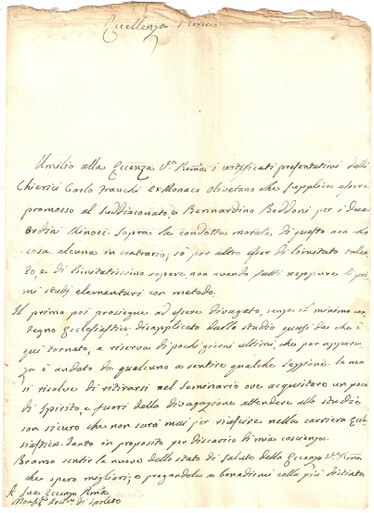 Eccellenza Rma
Umilio alla Eccenza Va Rma i certificati presentatimi dalli
Chierici Carlo Franchi exMonaco olivetano che supplica essere
promosso al Suddiaconato, e Bernardino Beddoni per i due
ordini Minori. Sopra la condotta morale di questo non ho
cosa alcuna in contrario, so per altro esser di limitato talen-
to, e di limitatissimo sapere, non avendo fatti neppure li pri
mi studj elementari con metodo.
Il primo poi prosegue ad essere divagato, senza il minimo con-
tegno Ecclesiastico, disapplicato dallo studio quasi da che è
qui tornato, a riserva di pochi giorni ultimi, che per apparen-
za è andato da qualcuno a sentire qualche lezzione. Se non
si risolve di ritirarsi nel Seminario ove acquistare un poco
di Spirito, e fuori della divagazione attendere allo studio
son sicuro che non sarà mai per riuscire nella carriera Eccle
siastica. Tanto in proposito per discarico di mia coscienza.
Bramo sentir le nuove dello stato di salute della Eccenza Va Rma
che spero migliori; e pregandola a benedirmi colla più distinta
A Sua Eccenza Rma
Monsigr di Spoleto